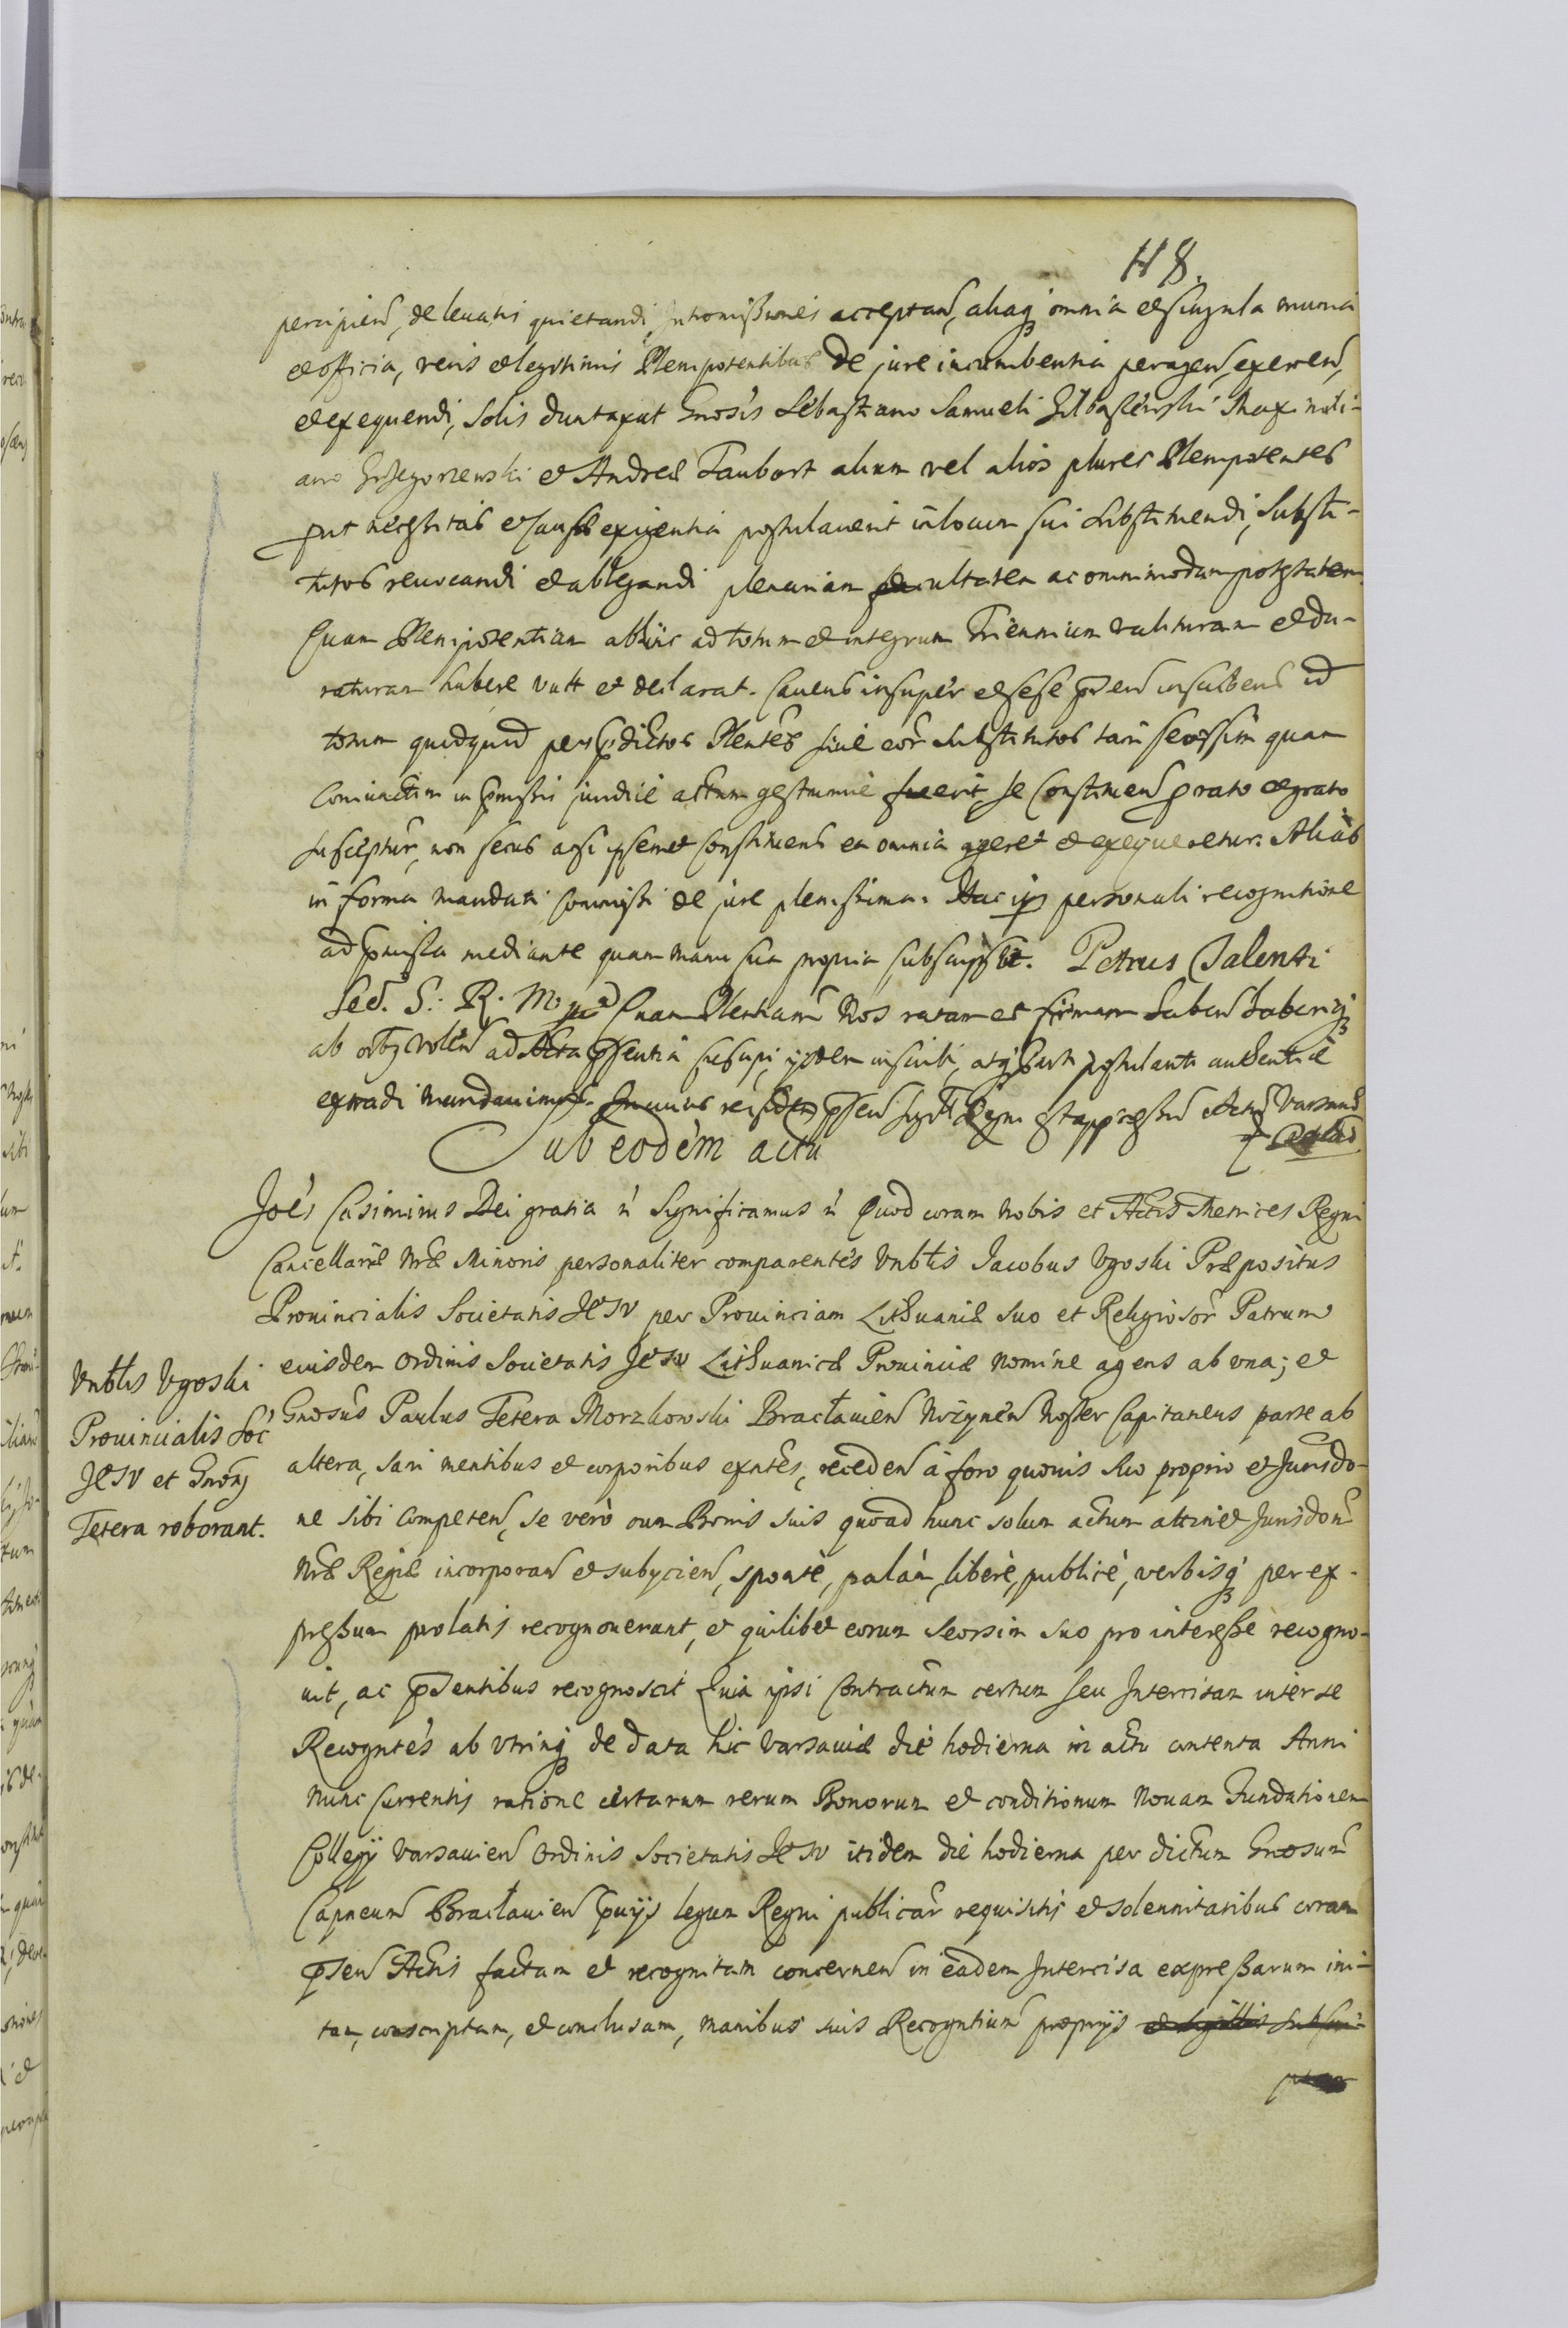 118.
percipiend, de leuatis quietandi, Intromissiones acceptand, aliaq omnia et singula munia
et officia, veris et legitimis Plenipotentibus de jure incumbentia peragend, exercend,
et exequendi, solis duntaxat Gnosis Sebastiano Samueli Maximili-
ano Grzegorzewski et Andreæ Taubert alium vel alios plures Plenipotentes
put necessitas et causæ exigentia postulauerit in locum sui substituendi, substi-
tutos reuocandi et ablegandi plenariam facultatem ac omnimodam potestatem
Quam Plenipotentiam abhinc ad totum et integrum Triennium valituram et du-
raturam habere vult et declarat. Cauens insuper et sese inscribens id
totum quidquid per pdictos Plentes siue eor substitutos tam seorsim quam
coniunctim in pmissis juridice actum gestumue fuerit, se Constituens p rato et grato
suscepturu, non secus acsi ipsemet Constituens ea omnia ageret et exequeretur. Alias
in forma mandati de jure plenissima. Hac personali recognitione
ad pmissa mediante quam manu sua propria subscripsit. Petrus Talenti
Sec. S. R. M. Quam Plentiam Nos ratam et firmam haben haberiq
ab oibq volen ad Acta psentia suscipi, ijsdem inscribi, atq parti postulanti authentice
extradi mandauimus. In cuius rei fidem psen Sigill Regni est appressu Actu Varsauiæ
Sub eodem actu
Joes Casimirus Dei gratia Significamus Quod coram Nobis et Actis Metrices Regni
Cancellariæ Nræ Minoris personaliter comparentes Vnblis Jacobus Vgoski Præpositus
Prouincialis Societatis JESV per Prouinciam Lithuaniæ suo et Religiosor Patrum
eiusdem Ordinis Societatis JESV Lithuanicæ Prouinciæ nomine agens ab vna; et
Gnosus Paulus Tetera Morzkowski Bracłauien Niżynen Noster Capitaneus parte ab
altera, sani mentibus et corporibus exntes, receden à foro quouis suo proprio et Jurisdo-
ne sibi competen, se verò cum Bonis suis quoad hunc solum actum attinet Jurisdoni
Nræ Regiæ incorporan et subijcien, spontè, palàm, liberè, publicè, verbisq per ex-
pressum prolatis recognouerunt, et quilibet eorum seorsim suo pro interesse recogno-
uit, ac psentibus recognoscit Quia ipsi Contractum certum seu Intercisam inter se
Recogntes ab vtrinq de data hic Varsauiæ die hodierna in actu contenta Anni
nunc currentis ratione certarum rerum Bonorum et conditionum Nouam Fundationem
Collegij Varsauien Ordinis Societatis JESV itidem die hodierna per dictum Gnosum
Capneum Bracłauien puijs legum Regni publicar requisitis et solennitatibus coram
psen Actis factam et recognitam concernen in eadem Intercisa expressarum ini-
tam, conscriptam, et conclusam, manibus suis Recogntium proprijs et sigillis subscri-
Vnblis Vgoski
Prouincialis Soc
JESV et Gnosq
Tetera roborant.